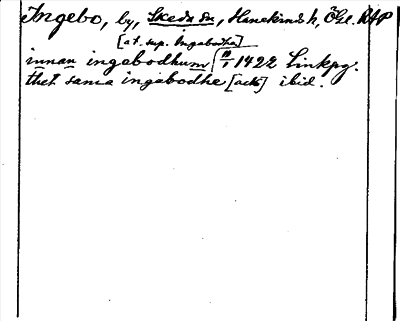 Ingebo, by, Skeda sn, Hanekinds h, Ögl. RAP
[at. sup. Ingabodha]
innan ingabodhum 1422 Linkpg.
thet sama ingabodhe [ack] ibid.